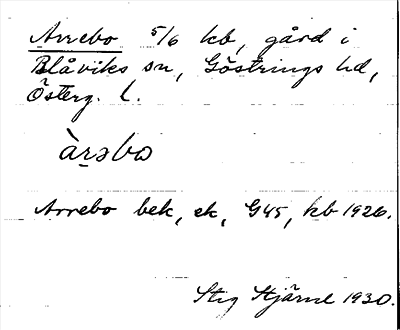 Arrebo 5/6 kb, gård i
Blåviks sn, Göstrings hd,
Österg. l.
àr̲əbo
Arrebo bek, ek, G45, kb 1926.
Stig Stjärne 1930.